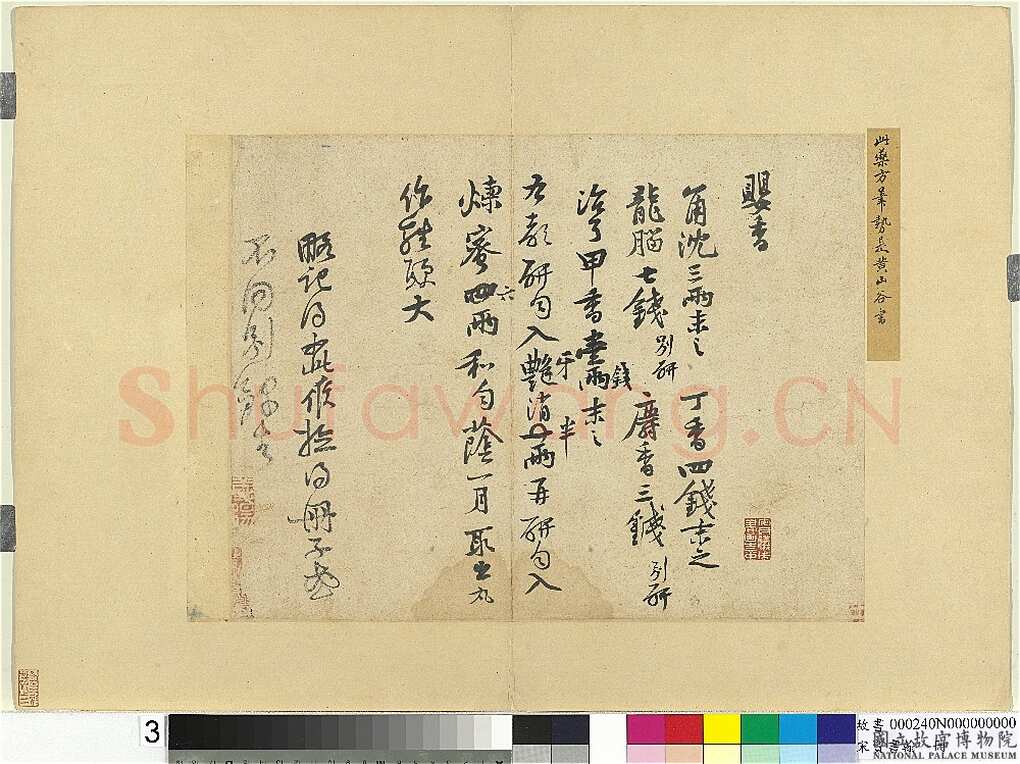 此藥方筆勢是黃山谷書
嬰香
角沈三兩末之 丁香四錢末之
龍腦七錢別研 麝香三錢別研
治了甲香壹兩錢末之
右都研勻入艷牙消半兩再研勻入
煉蜜四六兩和勻蔭一月取出丸
作雞頭大
略記得此候檢得冊子或
不同別錄去
Shufawang.CN
3
故書000240N000000000
國立故宮博物院
NATIONAL PALACE MUSEUM